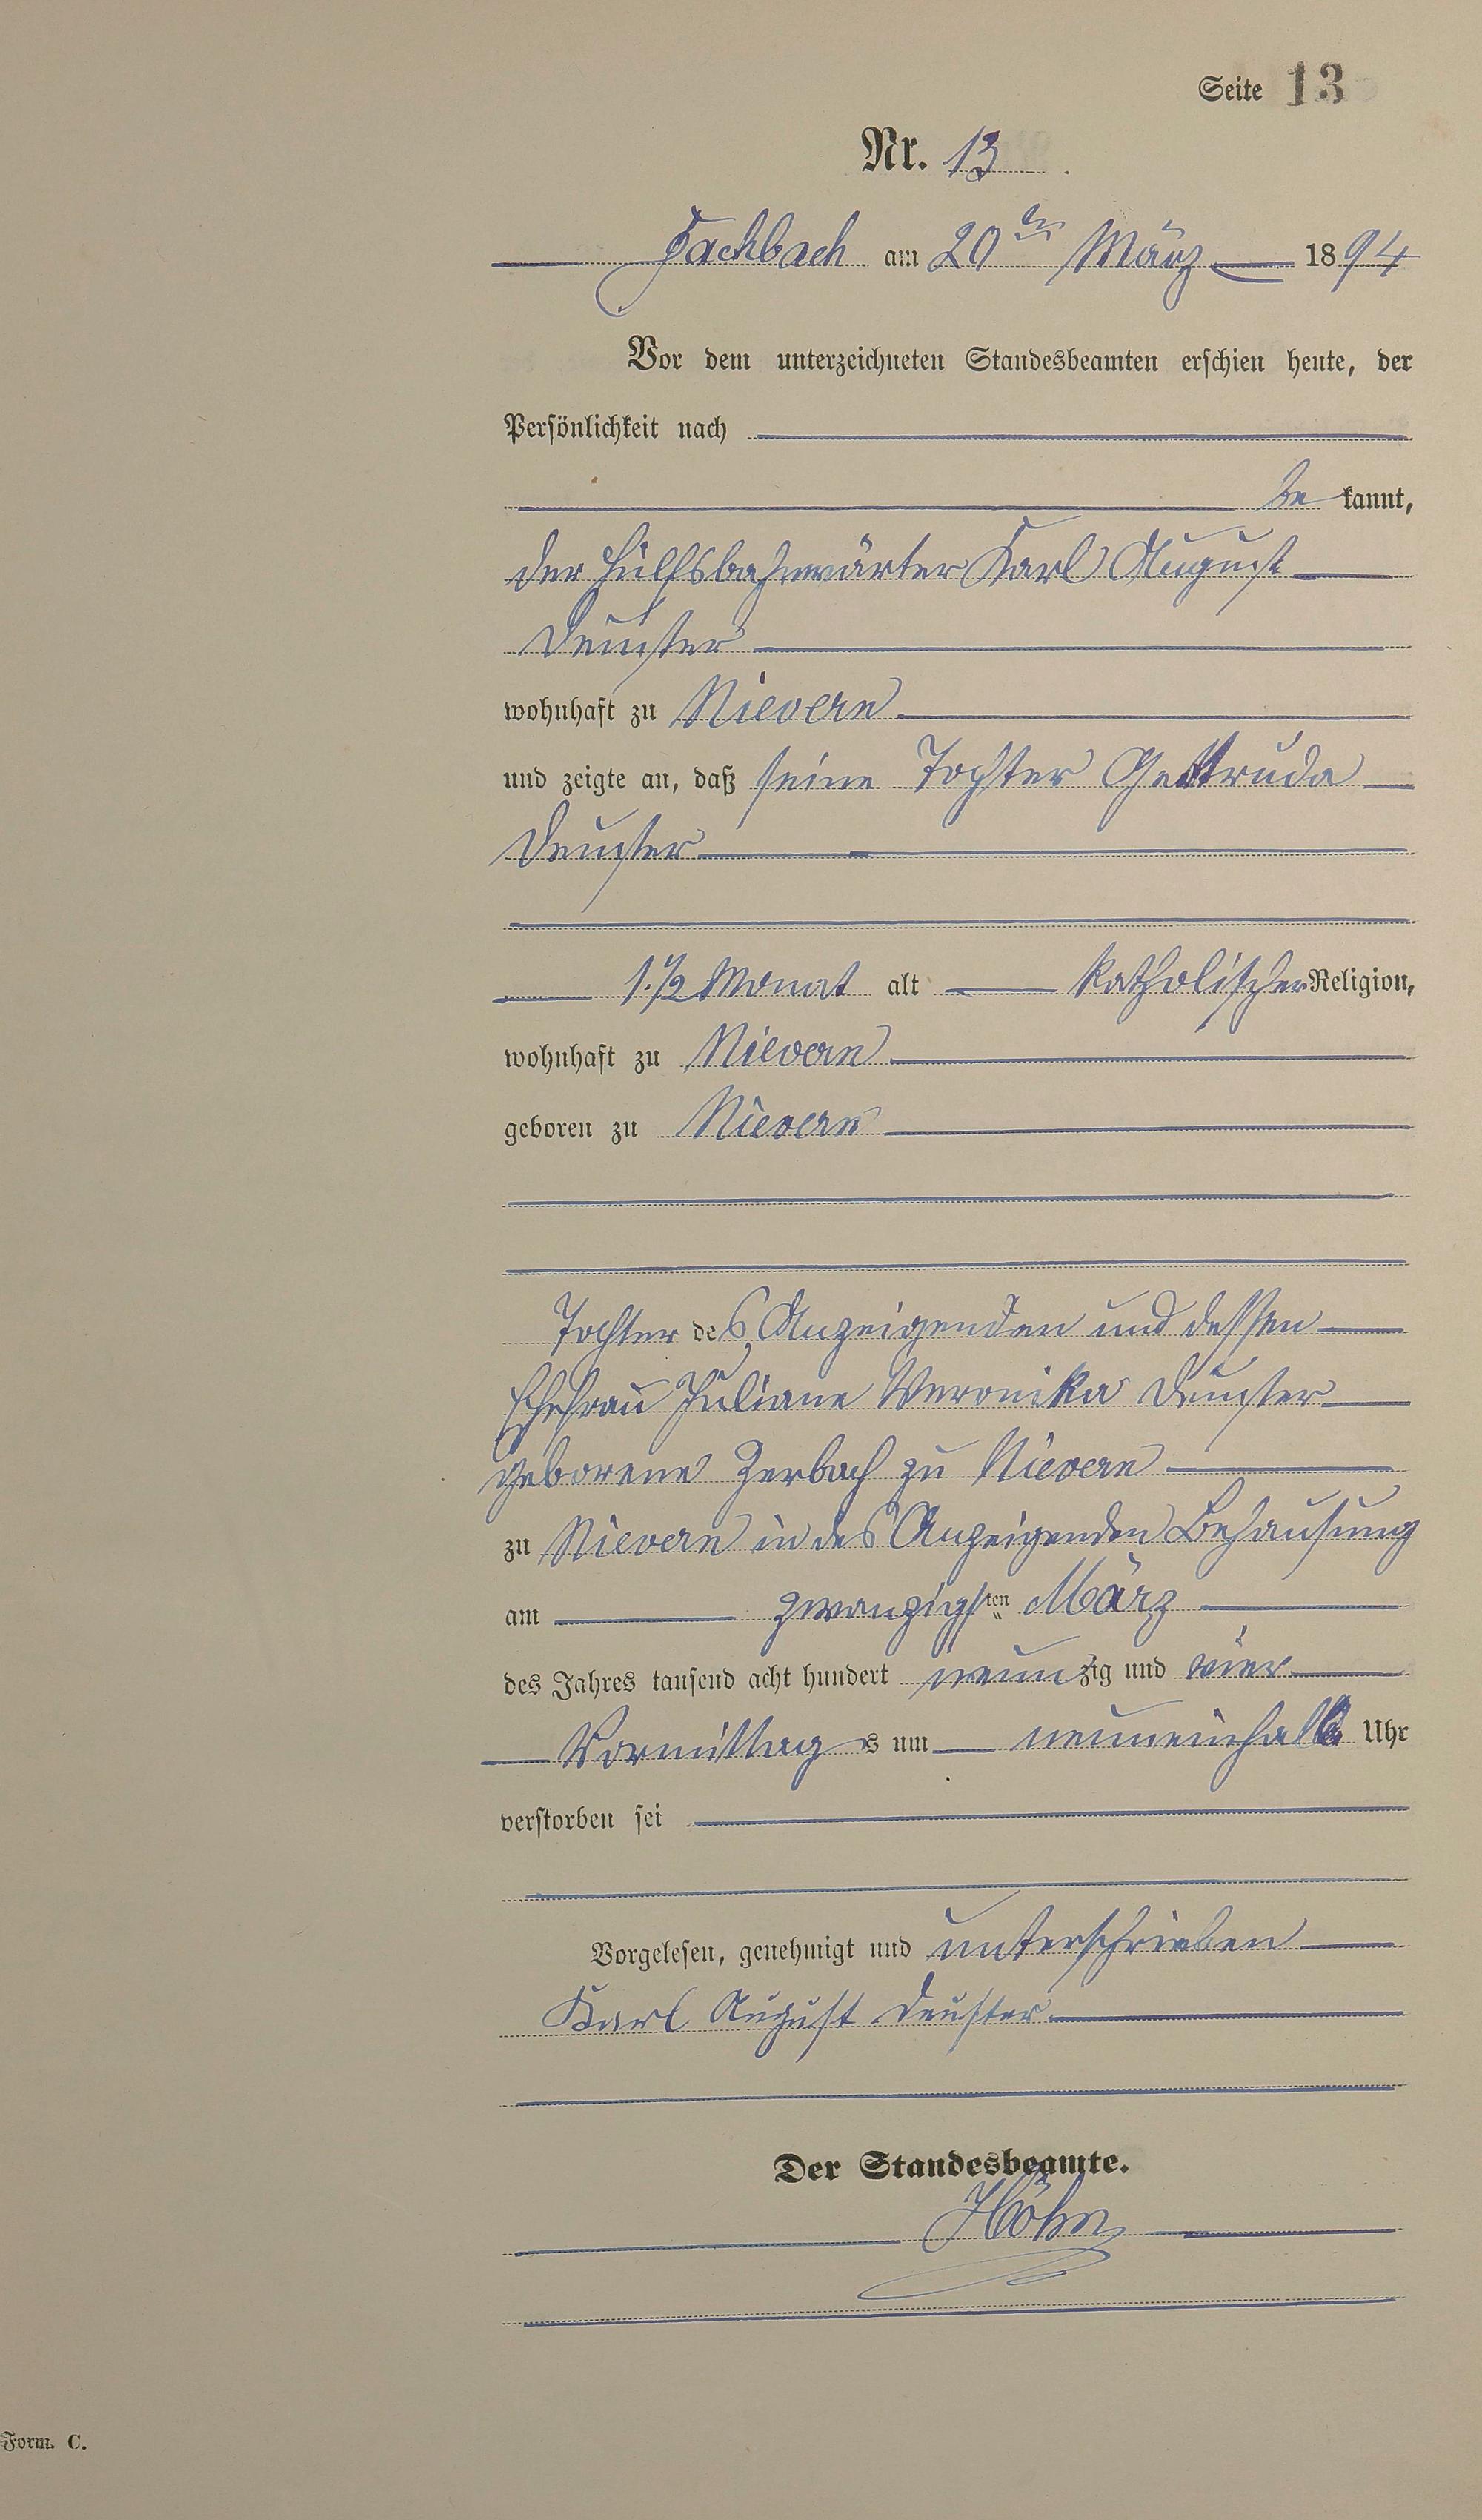 Seite 13
Nr. 13.
Fachbach am 20ten März 1894
Vor dem unterzeichneten Standesbeamten erschien heute, der
Persönlichkeit nach
be kannt,
der Hülfsbahnwärter Karl August
Deuster
wohnhaft zu Nievern
und zeigte an, daß seine Tochter Gertruda
Deuster
1 1/2 Monat alt katholischer Religion,
wohnhaft zu Nievern
geboren zu Nievern
Tochter des Anzeigenden und dessen
Ehefrau Juliane Veronika Deuster
geborene Zerbach zu Nievern
zu Nievern in des Anzeigenden Behausung
am zwanzigsten März
des Jahres tausend acht hundert neunzig und vier
Vormittags um neuneinhalb Uhr
verstorben sei
Vorgelesen, genehmigt und unterschrieben
Karl August Deuster
Der Standesbeamte.
Höhn
Form. C.